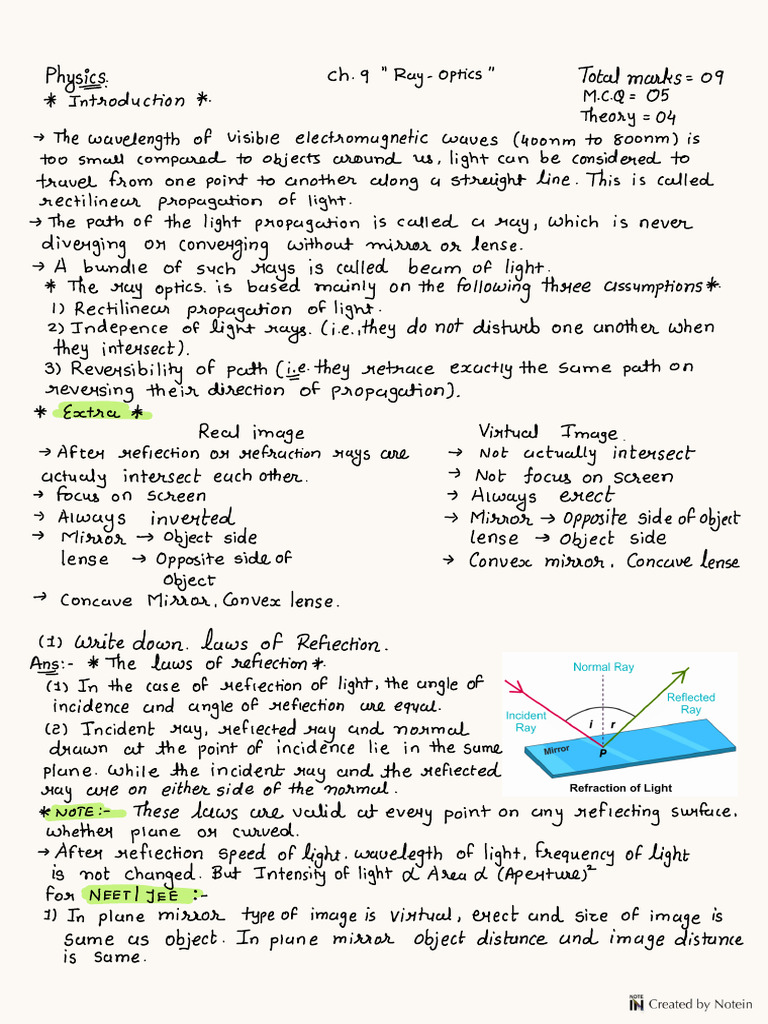 Physics.
Ch. 9 " Ray - Optics "
Total marks = 09
M.C.Q = 05
Theory = 04
* Introduction *.
→ The wavelength of visible electromagnetic waves (400nm to 800nm) is
too small compared to objects around us, light can be considered to
travel from one point to another along a straight line. This is called
rectilinear propagation of light.
→ The path of the light propagation is called a ray, which is never
diverging or converging without mirror or lense.
→ A bundle of such rays is called beam of light.
* The ray optics. is based mainly on the following three assumptions*.
1) Rectilinear propagation of light.
2) Indepence of light rays. (i.e., they do not disturb one another when
they intersect).
3) Reversibility of path (i.e. they retrace exactly the same path on
reversing their direction of propagation).
* Extra *
Real image
→ After reflection or refraction rays are
actualy intersect each other.
→ focus on screen
→ Always inverted
→ Mirror → Object side
lense → Opposite side of
Object
→ Concave Mirror, Convex lense.
Virtual Image.
→ Not actually intersect
→ Not focus on screen
→ Always erect
→ Mirror → Opposite side of object
lense → Object side
→ Convex mirror, Concave lense
(1) Write down. laws of Reflection.
Ans:- * The laws of reflection*.
(1) In the case of reflection of light, the angle of
incidence and angle of reflection are equal.
(2) Incident ray, reflected ray and normal
drawn at the point of incidence lie in the same
plane. While the incident ray and the reflected
ray are on either side of the normal.
Normal Ray
Reflected
Ray
Incident
Ray
i r
Mirror
P
Refraction of Light
* NOTE:- These laws are valid at every point on any reflecting surface.
whether plane or curved.
→ After reflection speed of light. wavelegth of light, frequency of light
is not changed. But Intensity of light α Area α (Aperture)²
for NEET/JEE :-
1) In plane mirror type of image is virtual, erect and size of image is
same as object. In plane mirror object distance and image distance
is same.
NOTE
IN Created by Notein